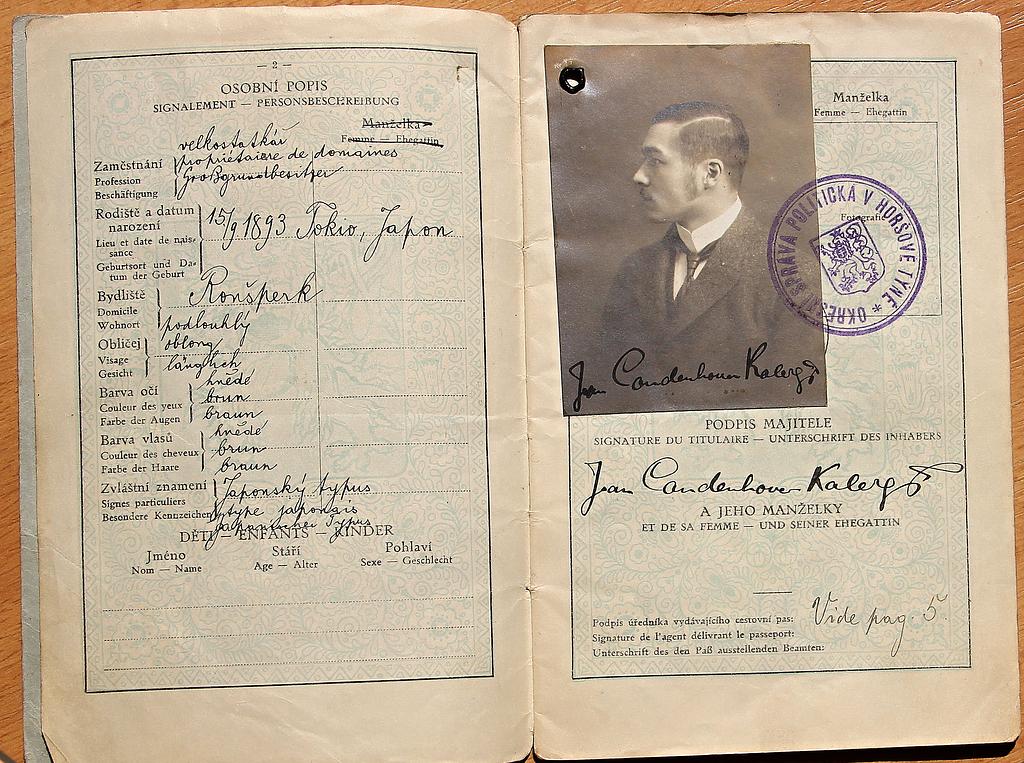 — 2 —
OSOBNÍ POPIS
SIGNALEMENT — PERSONSBESCHREIBUNG
Manželka
Femme — Ehegattin
velkostatkář
Zaměstnání propriétaire de domaines
Profession
Beschäftigung Großgrundbesitzer
Rodiště a datum
narození 15/9 1893 Tokio, Japon
Lieu et date de nais-
sance
Geburtsort und Da-
tum der Geburt
Bydliště Ronšperk
Domicile
Wohnort podlouhlý
Obličej oblong
Visage
Gesicht länglich
hnědé
Barva očí brun
Couleur des yeux
Farbe der Augen braun
hnědé
Barva vlasů
Couleur des cheveux brun
Farbe der Haare braun
Zvláštní znamení Japonský typus
Signes particuliers
Besondere Kennzeichen type japonais
japanischer Typus
DĚTI — ENFANTS — KINDER
Jméno Stáří Pohlaví
Nom — Name Age — Alter Sexe — Geschlecht
Manželka
Femme — Ehegattin
Fotografie
OKRESNÍ SPRÁVA POLITICKÁ V HORŠOVĚ TÝNĚ *
Jean Coudenhove Kalergi
PODPIS MAJITELE
SIGNATURE DU TITULAIRE — UNTERSCHRIFT DES INHABERS
Jean Coudenhove Kalergi
A JEHO MANŽELKY
ET DE SA FEMME — UND SEINER EHEGATTIN
Podpis úředníka vydávajícího cestovní pas: Vide pag. 5.
Signature de l'agent délivrant le passeport:
Unterschrift des den Paß ausstellenden Beamten: